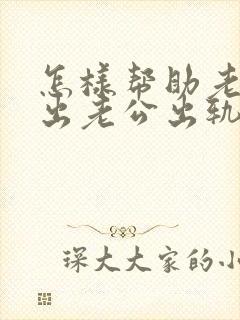 怎样帮助老
出老公出轨
琛大大家的小